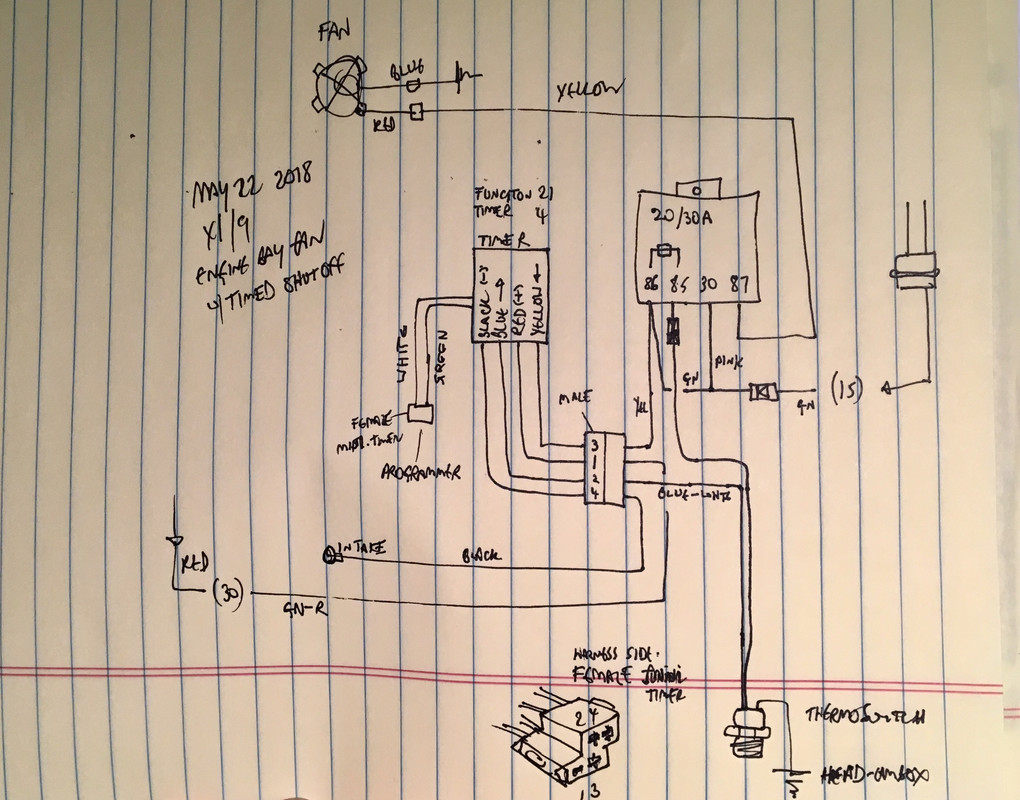 FAN
BLUE
RED
YELLOW
MAY 22 2018
X1/9
ENGINE BAY FAN
W/TIMED SHUTOFF
FUNCTION 21
TIMER 4
TIMER
BLACK (-)
BLUE
RED (+)
YELLOW
WHITE
GREEN
FEMALE
PROGRAMMER
20/30A
86 85 30 87
PINK
GN
GN
(15)
YEL
MALE
3
1
2
4
BLUE-WHITE
INTAKE
BLACK
RED
(30)
GN-R
HARNESS SIDE.
FEMALE
TIMER
2 4
1 3
THERMOSWITCH